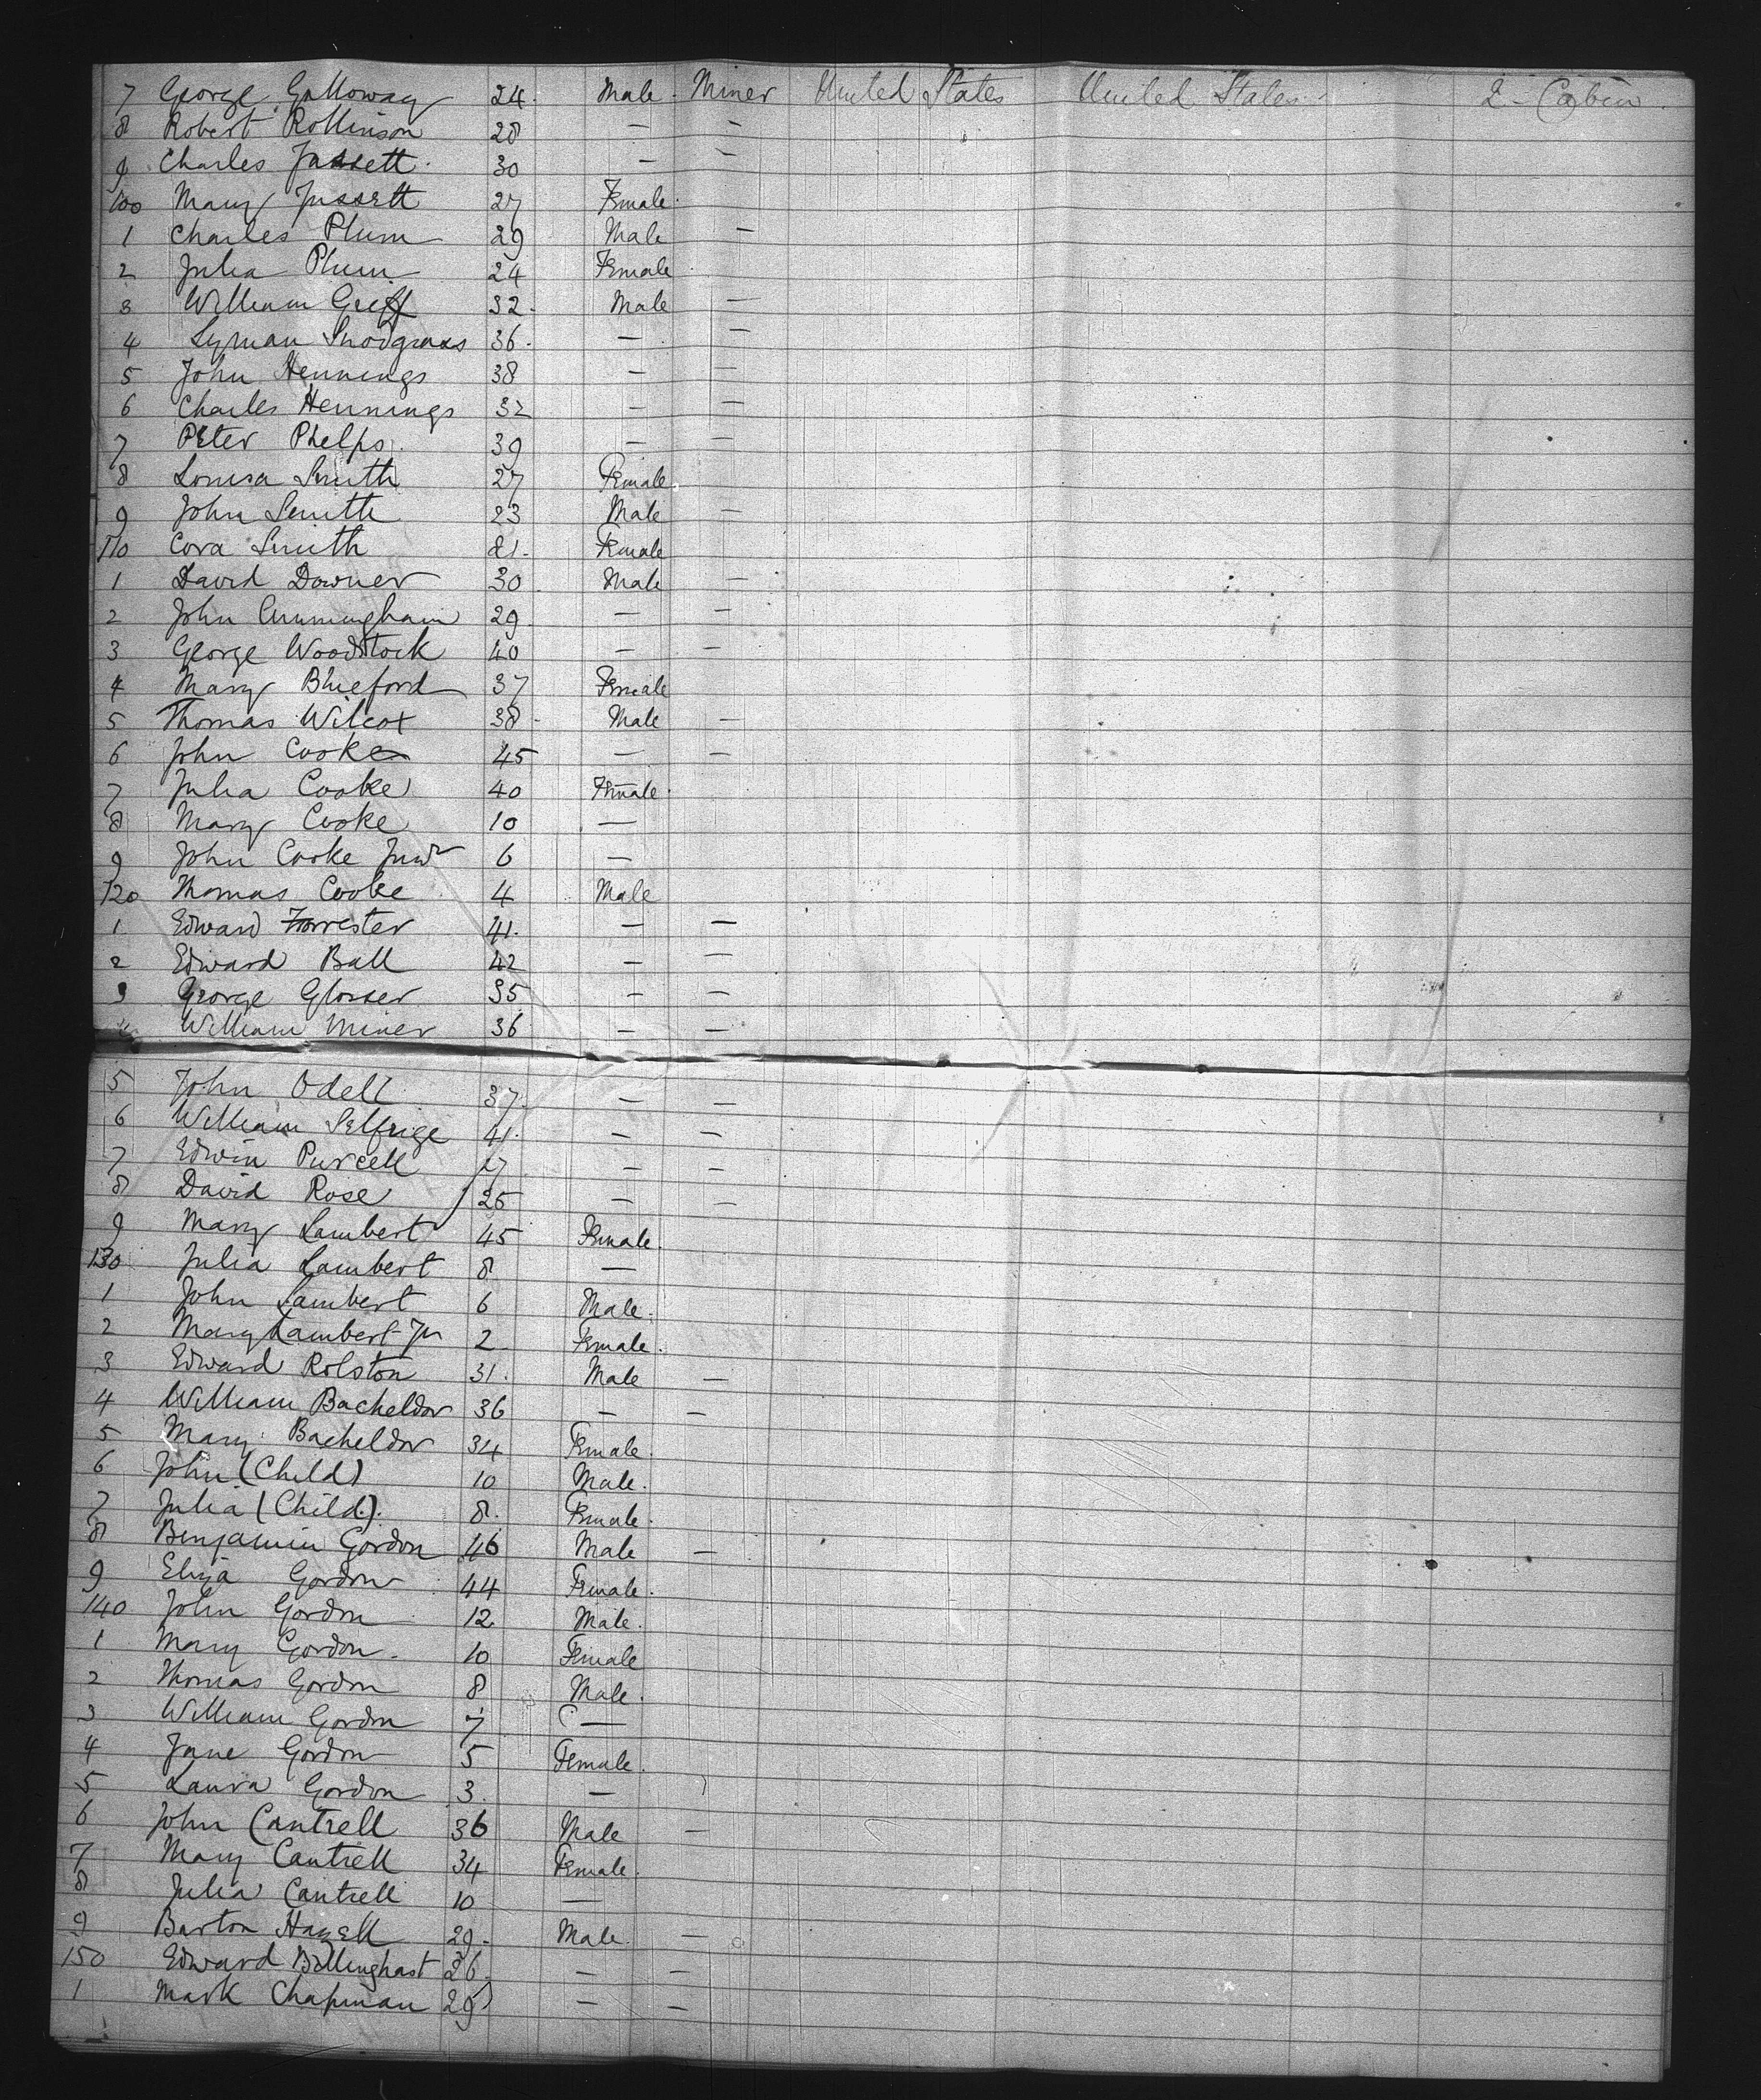 7 George Galloway 24. Male. Miner United States United States 2 - Cabin
8 Robert Rollinson 28 — —
9 Charles Jassett. 30 — —
100 Mary Jassett 27 Female.
1 Charles Plum 29 Male —
2 Julia Plum 24 Female
3 William Griff 32. Male —
4 Lyman Snodgrass 36. — —
5 John Hennings 38 — —
6 Charles Hennings 32 — —
7 Peter Phelps. 39 — —
8 Louisa Smith 27 Female.
9 John Smith 23 Male —
110 Cora Smith 21. Female
1 David Downer 30. Male —
2 John Cunningham 29. — —
3 George Woodstock 40 — —
4 Mary Blueford 37 Female
5 Thomas Wilcox 38 - Male —
6 John Cooke 45 — —
7 Julia Cooke 40 Female.
8 Mary Cooke 10 —
9 John Cooke Junr 6 —
120 Thomas Cooke 4 Male
1 Edward Forrester 41. — —
2 Edward Ball 42 — —
3 George Glosser 35 — —
William Miner 36 — —
5 John Odell 37. — —
6 William Selfrige 41. — —
7 Edwin Purcell 27 — —
8 David Rose 25 — —
9 Mary Lambert 45 Female.
130 Julia Lambert 8 —
1 John Lambert 6 Male.
2 Mary Lambert Jr 2 Female.
3 Edward Rolston 31. Male —
4 William Bacheldor 36 — —
5 Mary Bacheldor 34 Female.
6 John (Child) 10 Male.
7 Julia (Child). 8. Female.
8 Benjamin Gordon 46 Male —
9 Eliza Gordon 44 Female.
140 John Gordon 12 Male.
1 Mary Gordon. 10 Female
2 Thomas Gordon 8 Male.
3 William Gordon 7 —
4 Jane Gordon 5 Female.
5 Laura Gordon 3. —
6 John Cantrell 36 Male —
7 Mary Cantrell 34 Female.
8 Julia Cantrell 10 —
9 Barton Hazell 29. Male. —
150 Edward Billinghast 26. — —
1 Mark Chapman 29 — —